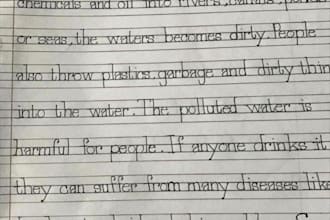 chemicals and oil into rivers, canals, ponds
or seas, the waters becomes dirty. People
also throw plastics, garbage and dirty thin
into the water. The polluted water is
harmful for people. If anyone drinks it
they can suffer from many diseases like